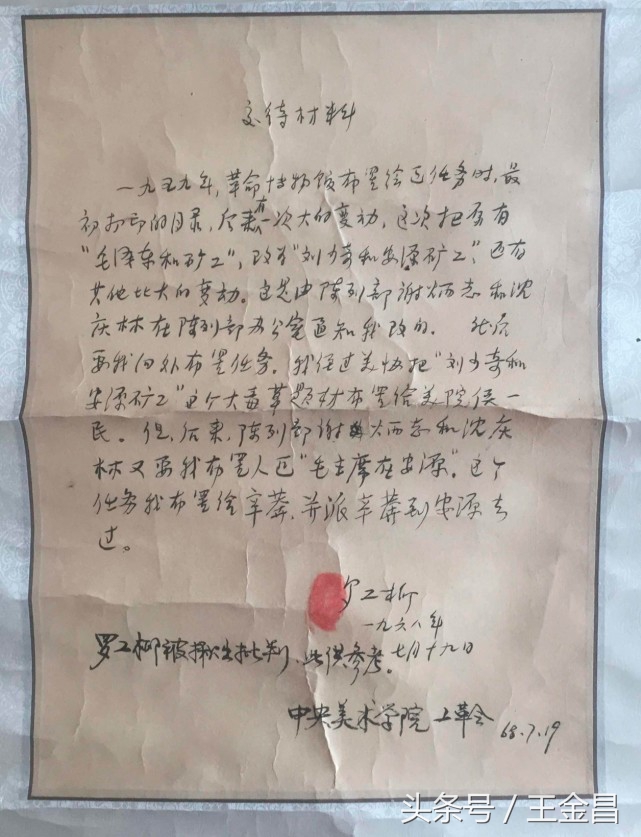 交待材料
一九五九年，革命博物馆布置绘画任务时，最
初打印的目录，后来有一次大的变动，这次把原有
“毛泽东和矿工”，改为“刘少奇和安源矿工”，还有
其他比大的变动。这是由陈列部谢炳志和沈
庆林在陈列部办公室通知我改的。然后
要我向外布置任务。我经过美协把“刘少奇和
安源矿工”这个大毒草题材布置给美院侯一
民。但，后来，陈列部谢炳志和沈庆
林又要我布置人画“毛主席在安源”。这个
任务我布置给辛莽，并派辛莽到安源去
过。
罗工柳
一九六八年
七月十九日
罗工柳被揪出批判，此供参考。
中央美术学院 革会
68.7.19
头条号 / 王金昌